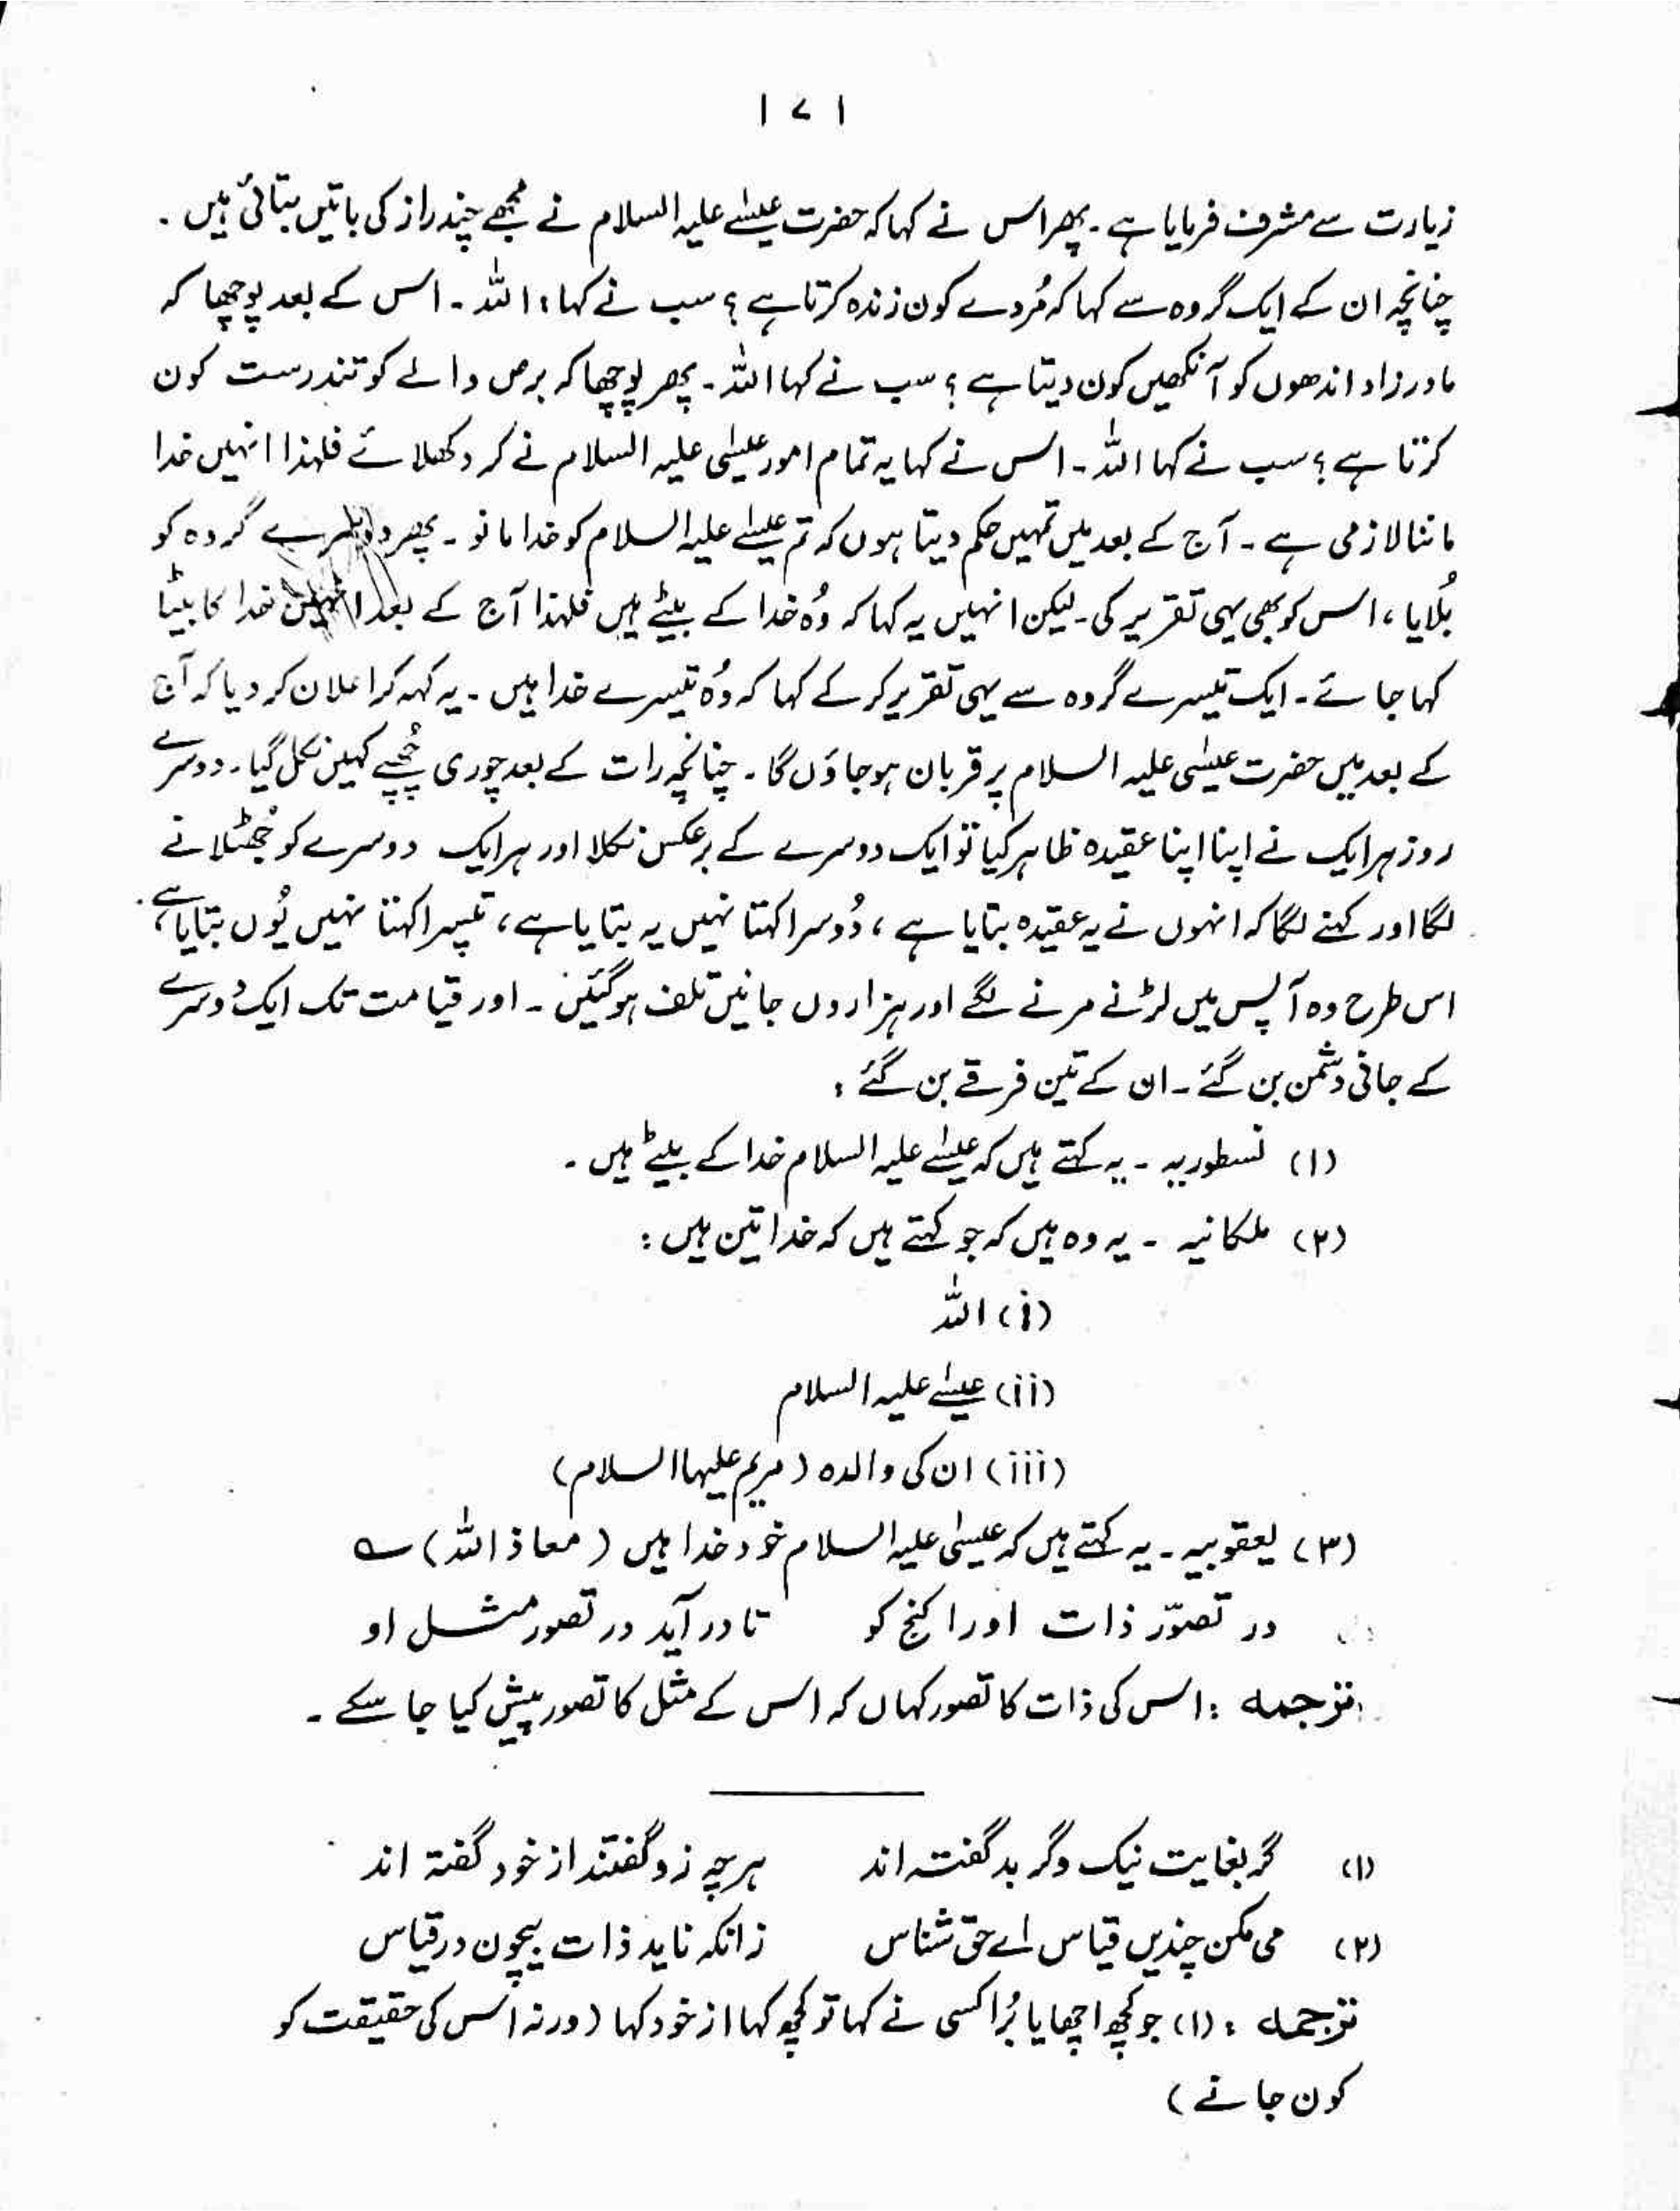 ۱۷۱
زیارت سے مشرف فرمایا ہے۔ پھر اس نے کہا کہ حضرت عیسٰے علیہ السلام نے مجھے چند راز کی باتیں بتائی ہیں۔
چنانچہ ان کے ایک گروہ سے کہا کہ مُردے کون زندہ کرتا ہے؟ سب نے کہا: اللہ۔ اس کے بعد پوچھا کہ
مادر زاد اندھوں کو آنکھیں کون دیتا ہے؟ سب نے کہا اللہ۔ پھر پوچھا کہ برص والے کو تندرست کون
کرتا ہے؟ سب نے کہا اللہ۔ اس نے کہا یہ تمام امور عیسٰی علیہ السلام نے کر دکھلائے فلہٰذا انہیں خدا
ماننا لازمی ہے۔ آج کے بعد میں تمہیں حکم دیتا ہوں کہ تم عیسٰے علیہ السلام کو خدا مانو۔ پھر دوسرے گروہ کو
بُلایا، اس کو بھی یہی تقریر کی۔ لیکن انہیں یہ کہا کہ وُہ خدا کے بیٹے ہیں فلہذا آج کے بعد انہیں خدا کا بیٹا
کہا جائے۔ ایک تیسرے گروہ سے یہی تقریر کر کے کہا کہ وُہ تیسرے خدا ہیں۔ یہ کہہ کر اعلان کر دیا کہ آج
کے بعد میں حضرت عیسٰی علیہ السلام پر قربان ہو جاؤں گا۔ چنانچہ رات کے بعد چوری چُھپے کہیں نکل گیا۔ دوسرے
روز ہر ایک نے اپنا اپنا عقیدہ ظاہر کیا تو ایک دوسرے کے برعکس نکلا اور ہر ایک دوسرے کو جُھٹلانے
لگا اور کہنے لگا کہ انہوں نے یہ عقیدہ بتایا ہے، دُوسرا کہتا نہیں یہ بتایا ہے، تیسرا کہتا نہیں یُوں بتایا ہے،
اس طرح وہ آپس میں لڑنے مرنے لگے اور ہزاروں جانیں تلف ہو گئیں۔ اور قیامت تک ایک دُوسرے
کے جانی دشمن بن گئے۔ ان کے تین فرقے بن گئے:
(۱) نسطوریہ ۔ یہ کہتے ہیں کہ عیسٰے علیہ السلام خدا کے بیٹے ہیں۔
(۲) ملکانیہ ۔ یہ وہ ہیں کہ جو کہتے ہیں کہ خدا تین ہیں:
(i) اللہ
(ii) عیسٰے علیہ السلام
(iii) ان کی والدہ (مریم علیہا السلام)
(۳) یعقوبیہ ۔ یہ کہتے ہیں کہ عیسٰی علیہ السلام خود خدا ہیں (معاذ اللہ) ؎
در تصوّر ذات اورا کنج کو تا در آید در تصور مثل او
ترجمہ: اس کی ذات کا تصور کہاں کہ اس کے مثل کا تصور پیش کیا جا سکے۔
(۱) گر بغایت نیک وگر بد گفتہ اند ہرچہ زو گفتند از خود گفتہ اند
(۲) می مکن چندیں قیاس اے حق شناس زانکہ ناید ذات بیچون در قیاس
ترجمہ: (۱) جو کچھ اچھا یا بُرا کسی نے کہا تو کچھ کہا از خود کہا (ورنہ اس کی حقیقت کو
کون جانے)